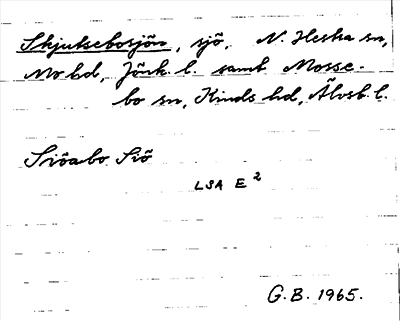 Skjutsebosjön, sjö, N. Hestra sn,
Mo hd, Jönk. l. samt Mosse-
bo sn, Kinds hd, Älvsb. l.
Siöabo Siö
LSA E²
G.B. 1965.